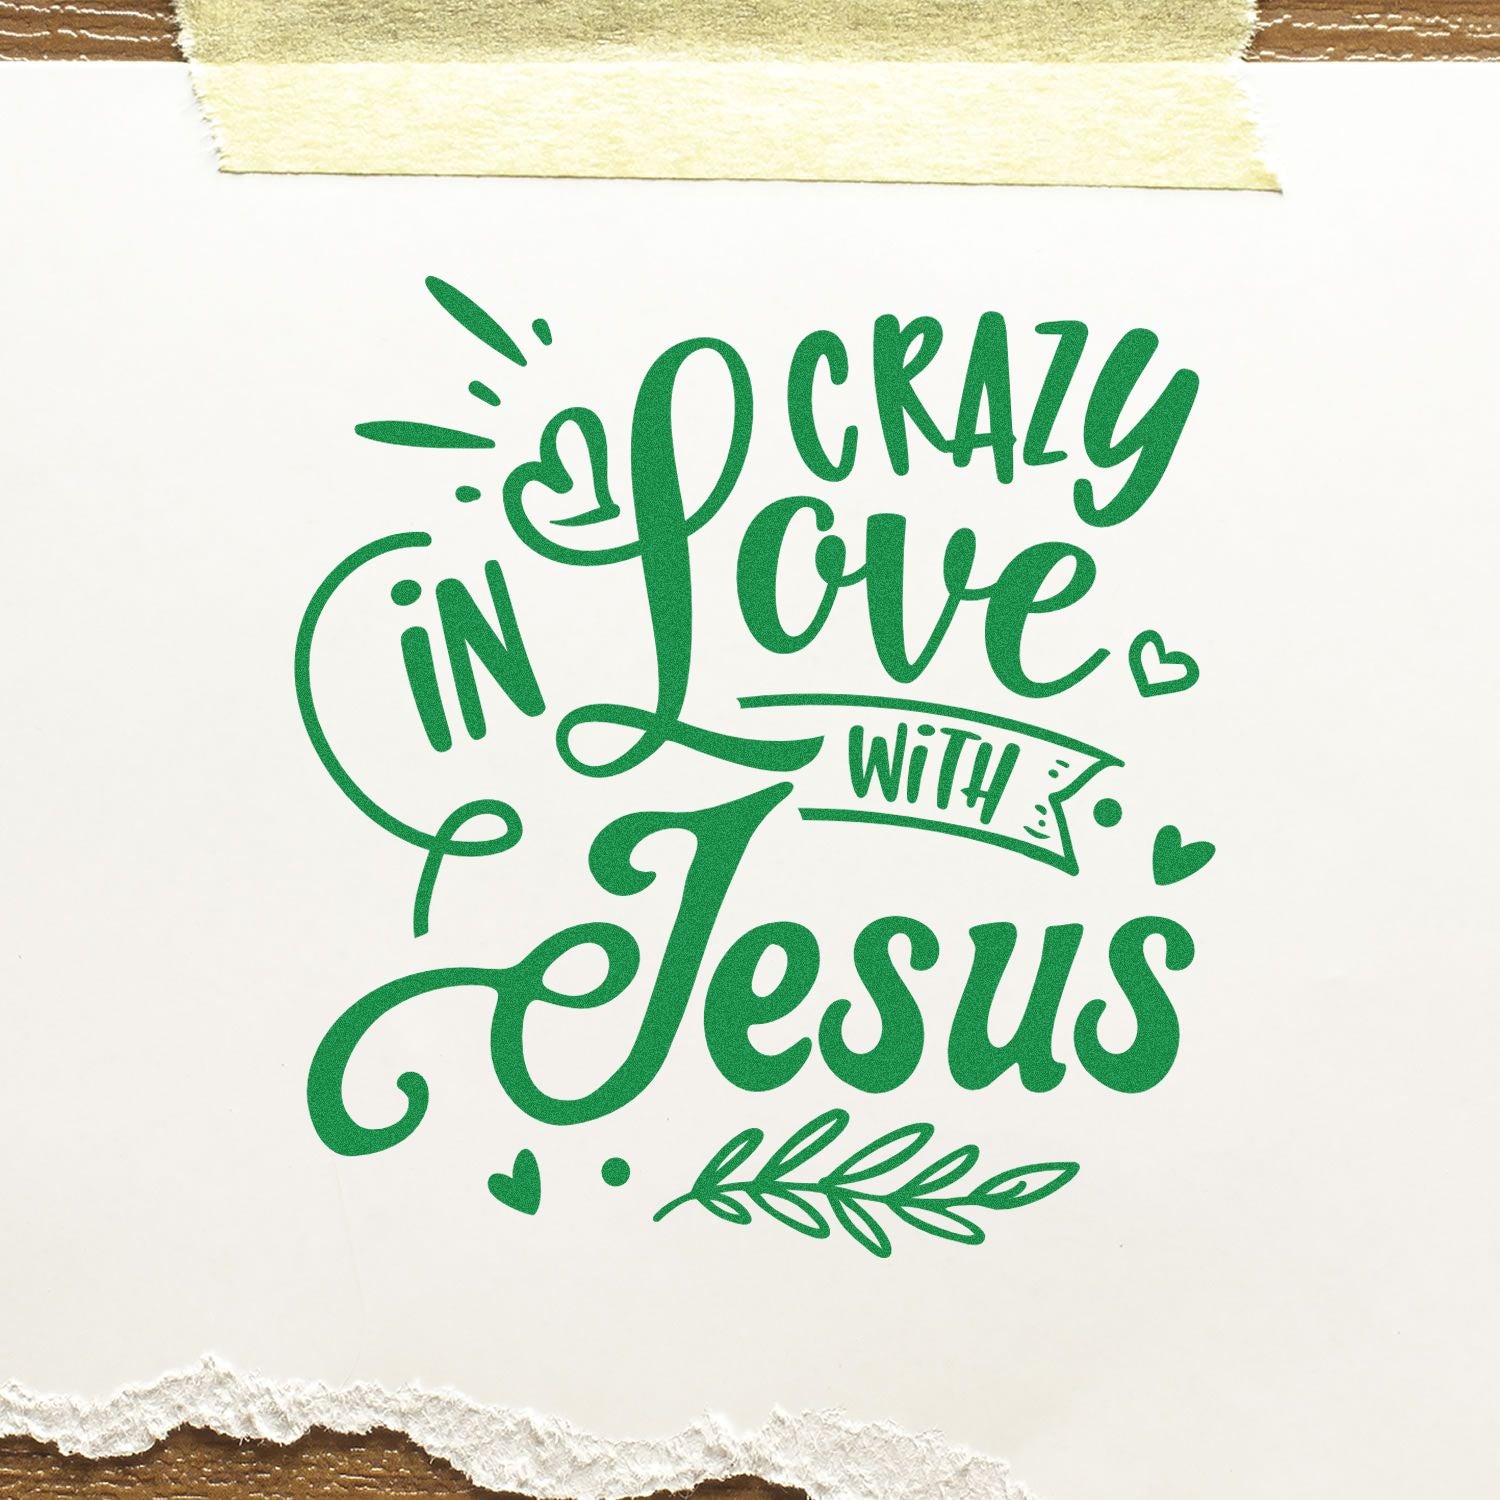 CRAZY
iN Love
WiTH
Jesus